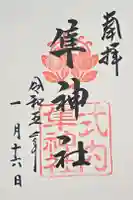 奉拝
隼神社
式内
隼神社
令和五年
一月十六日